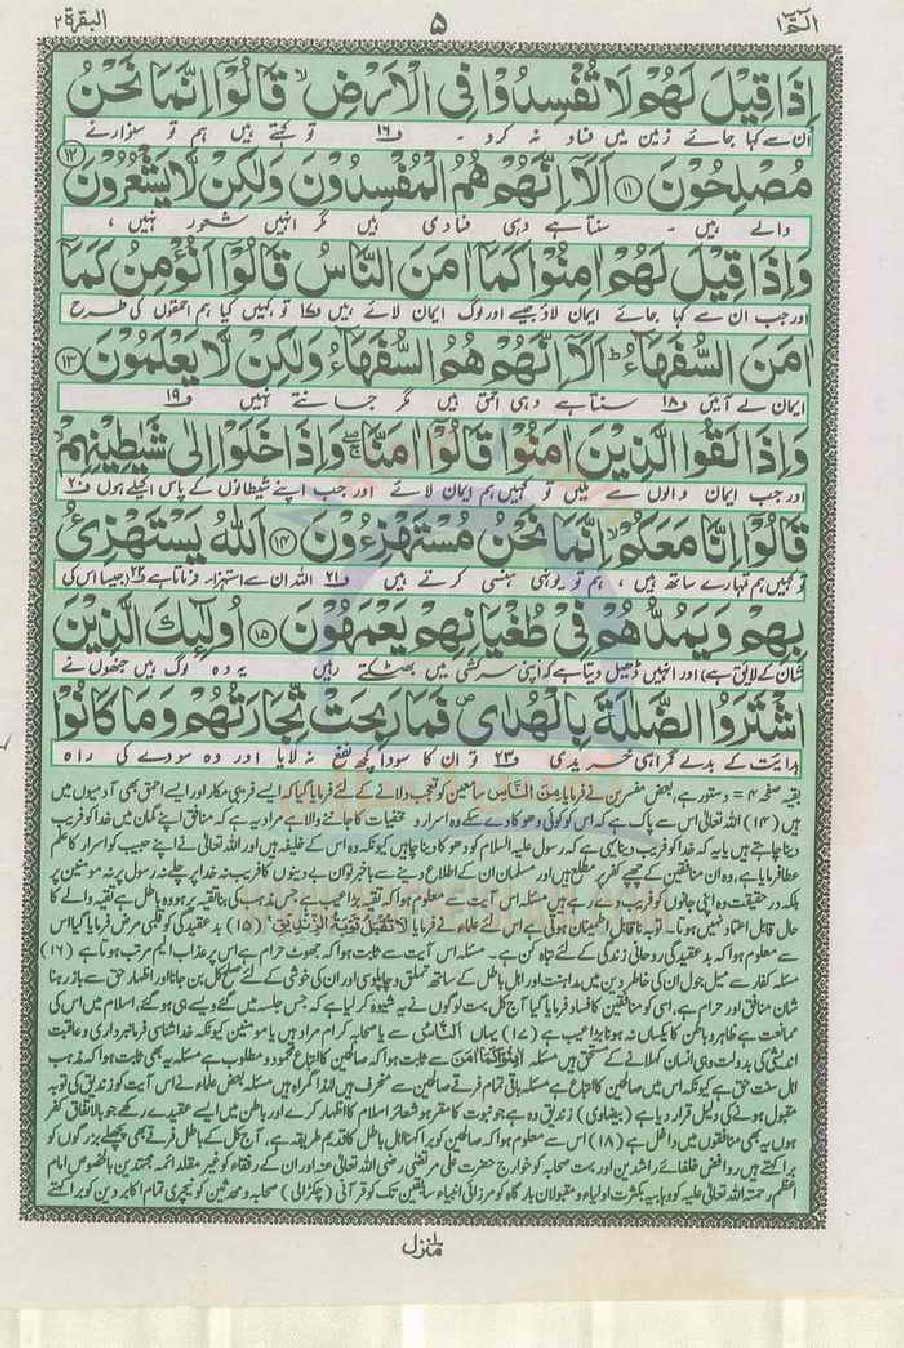 الٓمّٓ ۱
۵
البقرۃ ۲
اِذَا قِیْلَ لَهُمْ لَا تُفْسِدُوْا فِی الْاَرْضِ ۙ قَالُوْۤا اِنَّمَا نَحْنُ
ان سے کہا جائے زمین میں فساد نہ کرو ۔ ف۱۶ تو کہتے ہیں ہم تو سنوارنے
مُصْلِحُوْنَ ﴿۱۱﴾ اَلَاۤ اِنَّهُمْ هُمُ الْمُفْسِدُوْنَ وَلٰكِنْ لَّا یَشْعُرُوْنَ ﴿۱۲﴾
والے ہیں ۔ سنتا ہے وہی فسادی ہیں مگر انہیں شعور نہیں ،
وَاِذَا قِیْلَ لَهُمْ اٰمِنُوْا كَمَاۤ اٰمَنَ النَّاسُ قَالُوْۤا اَنُؤْمِنُ كَمَاۤ
اور جب ان سے کہا جائے ایمان لاؤ جیسے اور لوگ ایمان لائے ہیں ف۱۷ تو کہیں کیا ہم احمقوں کی طرح
اٰمَنَ السُّفَهَآءُ ؕ اَلَاۤ اِنَّهُمْ هُمُ السُّفَهَآءُ وَلٰكِنْ لَّا یَعْلَمُوْنَ ﴿۱۳﴾
ایمان لے آئیں ف۱۸ سنتا ہے وہی احمق ہیں مگر جانتے نہیں ف۱۹
وَاِذَا لَقُوا الَّذِیْنَ اٰمَنُوْا قَالُوْۤا اٰمَنَّا ۚ وَاِذَا خَلَوْا اِلٰی شَیٰطِیْنِهِمْ ۙ
اور جب ایمان والوں سے ملیں تو کہیں ہم ایمان لائے اور جب اپنے شیطانوں کے پاس اکیلے ہوں ف۲۰
قَالُوْۤا اِنَّا مَعَكُمْ ۙ اِنَّمَا نَحْنُ مُسْتَهْزِءُوْنَ ﴿۱۴﴾ اَللّٰهُ یَسْتَهْزِئُ
تو کہیں ہم تمہارے ساتھ ہیں ، ہم تو یونہی ہنسی کرتے ہیں ف۲۱ اللہ ان سے استہزاء فرماتا ہے ف۲۲ (جیسا اس کی
بِهِمْ وَیَمُدُّهُمْ فِیْ طُغْیَانِهِمْ یَعْمَهُوْنَ ﴿۱۵﴾ اُولٰٓئِكَ الَّذِیْنَ
شان کے لائق ہے) اور انہیں ڈھیل دیتا ہے کہ اپنی سرکشی میں بھٹکتے رہیں یہ وہ لوگ ہیں جنھوں نے
اشْتَرَوُا الضَّلٰلَةَ بِالْهُدٰی ۪ فَمَا رَبِحَتْ تِّجَارَتُهُمْ وَمَا كَانُوْا
ہدایت کے بدلے گمراہی خریدی ف۲۳ تو ان کا سودا کچھ نفع نہ لایا اور وہ سودے کی راہ
بقیہ صفحہ ۴ = دستور ہے، بعض مفسرین نے فرمایا مِنَ النَّاسِ سامعین کو تعجب دلانے کے لئے فرمایا گیا کہ ایسے فریبی مکار اور ایسے احمق بھی آدمیوں میں
ہیں (۱۴) اللہ تعالیٰ اس سے پاک ہے کہ اس کو کوئی دھوکا دے سکے وہ اسرار و مخفیات کا جاننے والا ہے مراد یہ ہے کہ منافق اپنے گمان میں خدا کو فریب
دینا چاہتے ہیں یا یہ کہ خدا کو فریب دینا یہی ہے کہ رسول علیہ السلام کو دھوکا دینا چاہیں کیونکہ وہ اس کے خلیفہ ہیں اور اللہ تعالیٰ نے اپنے حبیب کو اسرار کا علم
عطا فرمایا ہے، وہ ان منافقین کے چھپے کفر پر مطلع ہیں اور مسلمان ان کے اطلاع دینے سے باخبر تو ان بے دینوں کا فریب نہ خدا پر چلے نہ رسول پر نہ مومنین پر
بلکہ درحقیقت وہ اپنی جانوں کو فریب دے رہے ہیں مسئلہ اس آیت سے معلوم ہوا کہ تقیہ بڑا عیب ہے جس مذہب کی بنا تقیہ پر ہو وہ باطل ہے تقیہ والے کا
حال قابل اعتماد نہیں ہوتا۔ توبہ ناقابل اطمینان ہوتی ہے اس لئے علماء نے فرمایا لَا تُقْبَلُ تَوْبَةُ الزِّنْدِیْقِ (۱۵) بدعقیدگی کو قلبی مرض فرمایا گیا اس
سے معلوم ہوا کہ بدعقیدگی روحانی زندگی کے لئے تباہ کن ہے۔ مسئلہ اس آیت سے ثابت ہوا کہ جھوٹ حرام ہے اس پر عذاب الیم مرتب ہوتا ہے (۱۶)
مسئلہ کفار سے میل جول ان کی خاطر دین میں مداہنت اور اہل باطل کے ساتھ تملق و چاپلوسی اور ان کی خوشی کے لئے صلح کل بن جانا اور اظہار حق سے باز رہنا
شان منافق اور حرام ہے، اسی کو منافقین کا فساد فرمایا گیا آج کل بہت لوگوں نے یہ شیوہ کر لیا ہے کہ جس جلسہ میں گئے ویسے ہی ہو گئے، اسلام میں اس کی
ممانعت ہے ظاہر و باطن کا یکساں نہ ہونا بڑا عیب ہے (۱۷) یہاں اَلنَّاسُ سے یا صحابہ کرام مراد ہیں یا مومنین کیونکہ خدا شناسی فرمانبرداری و عاقبت
اندیشی کی بدولت وہی انسان کہلانے کے مستحق ہیں مسئلہ اٰمِنُوْا كَمَاۤ اٰمَنَ سے ثابت ہوا کہ صالحین کا اتباع محمود و مطلوب ہے مسئلہ یہ بھی ثابت ہوا کہ مذہب
اہل سنت حق ہے کیونکہ اس میں صالحین کا اتباع ہے مسئلہ باقی تمام فرقے صالحین سے منحرف ہیں لہٰذا گمراہ ہیں مسئلہ بعض علماء نے اس آیت کو زندیق کی توبہ
مقبول ہونے کی دلیل قرار دیا ہے (بیضاوی) زندیق وہ ہے جو نبوت کا مقر ہو شعائر اسلام کا اظہار کرے اور باطن میں ایسے عقیدے رکھے جو بالاتفاق کفر
ہوں یہ بھی منافقوں میں داخل ہے (۱۸) اس سے معلوم ہوا کہ صالحین کو برا کہنا اہل باطل کا قدیم طریقہ ہے، آج کل کے باطل فرقے بھی پچھلے بزرگوں کو
برا کہتے ہیں روافض خلفائے راشدین اور بہت صحابہ کو خوارج حضرت علی مرتضیٰ رضی اللہ تعالیٰ عنہ اور ان کے رفقاء کو غیر مقلد ائمہ مجتہدین بالخصوص امام
اعظم رحمتہ اللہ تعالیٰ علیہ کو وہابیہ بکثرت اولیاء و مقبولان بارگاہ کو مرزائی انبیاء سابقین تک کو قرآنی (چکڑالی) صحابہ و محدثین کو نیچری تمام اکابر دین کو برا کہتے
منزل ۱